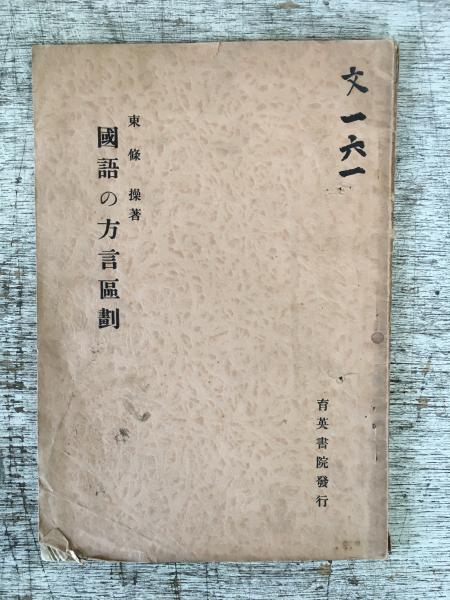 文一六一
東條操著
國語の方言區劃
育英書院發行